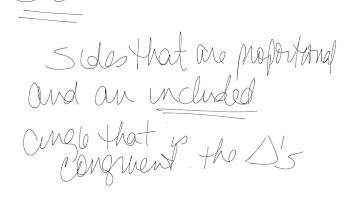 sides that are proportional
and an included
angle that is
congruent the Δ's